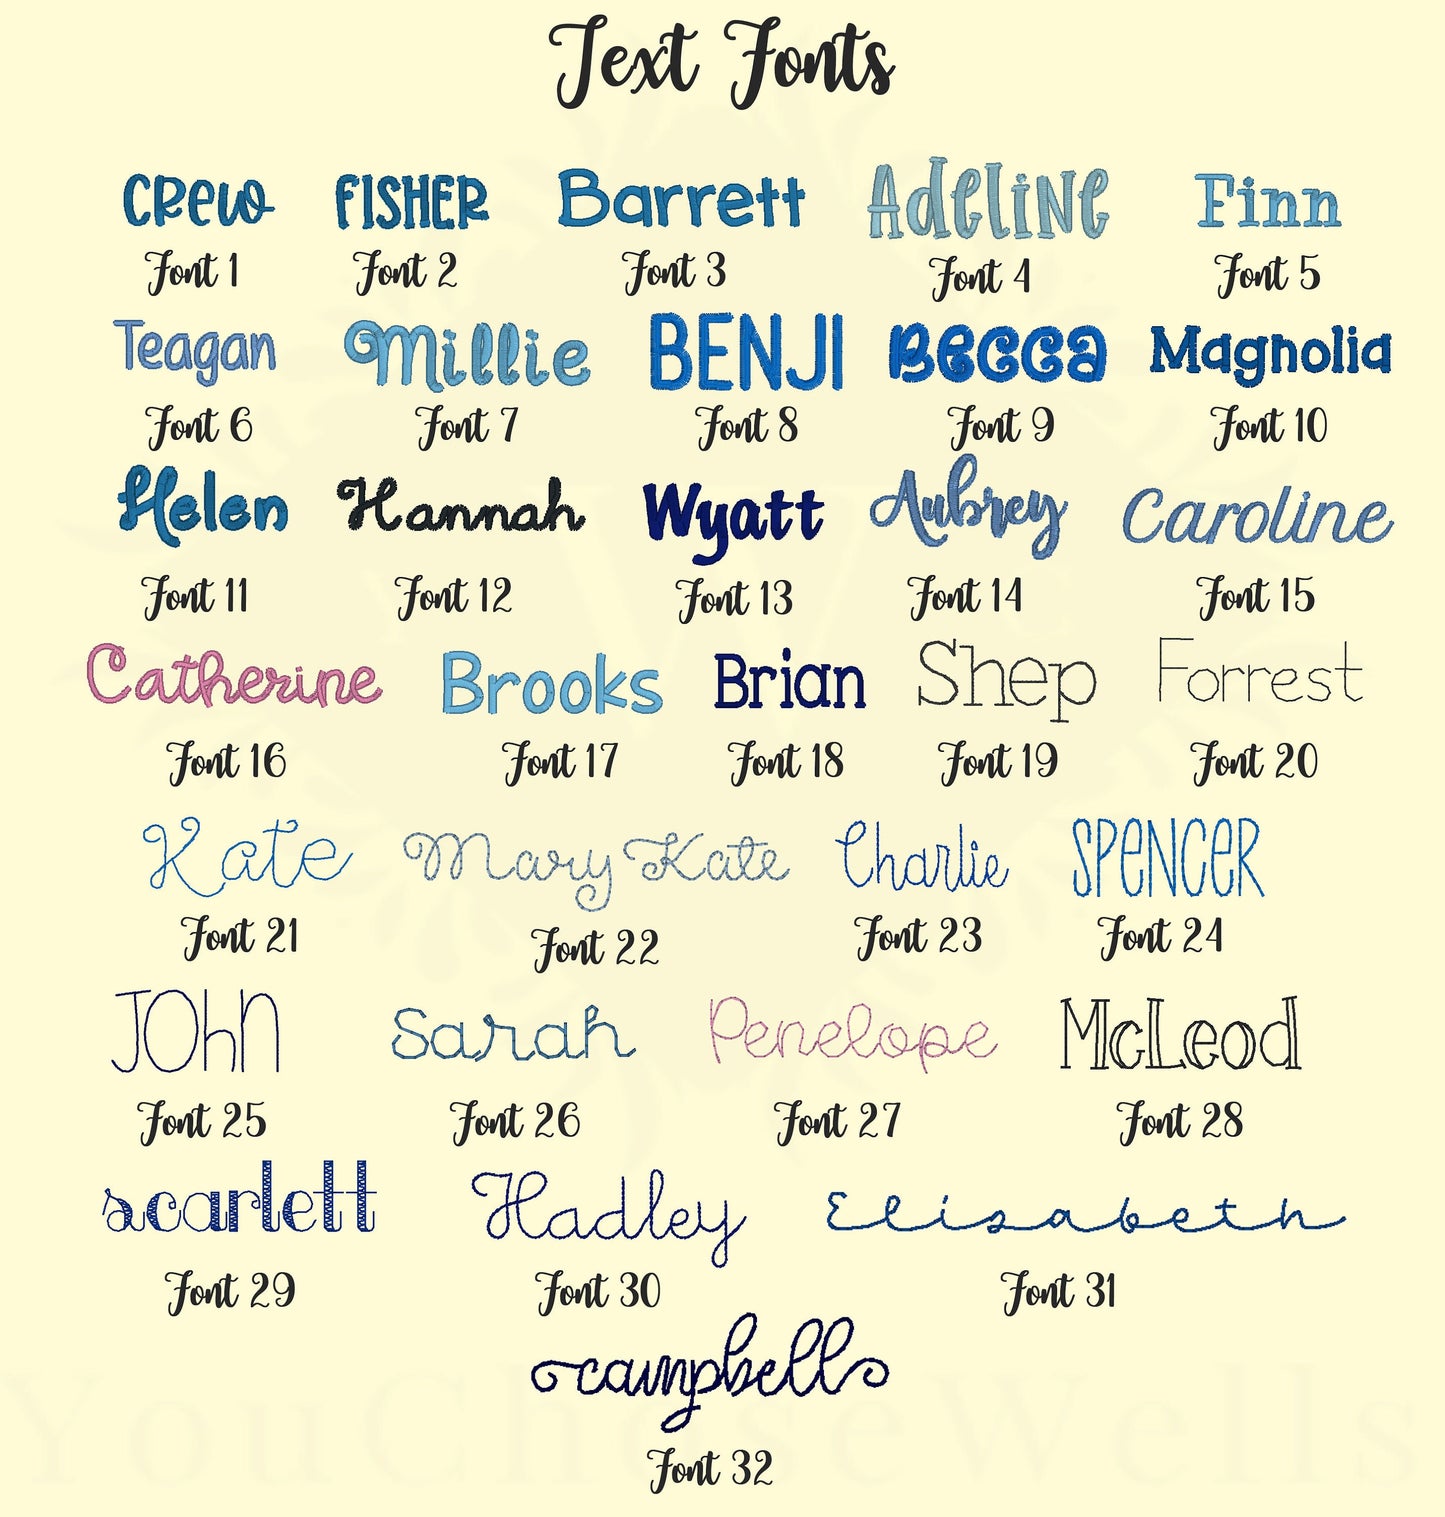 Text Fonts
CRew FISHER Barrett AdeLiNe Finn
Font 1 Font 2 Font 3 Font 4 Font 5
Teagan Millie BENJI Becca Magnolia
Font 6 Font 7 Font 8 Font 9 Font 10
Helen Hannah Wyatt Aubrey Caroline
Font 11 Font 12 Font 13 Font 14 Font 15
Catherine Brooks Brian Shep Forrest
Font 16 Font 17 Font 18 Font 19 Font 20
Kate Mary Kate Charlie SPeNCeR
Font 21 Font 22 Font 23 Font 24
JOhn Sarah Penelope McLeod
Font 25 Font 26 Font 27 Font 28
scarlett Hadley Elizabeth
Font 29 Font 30 Font 31
campbell
Font 32
YouChoseWells